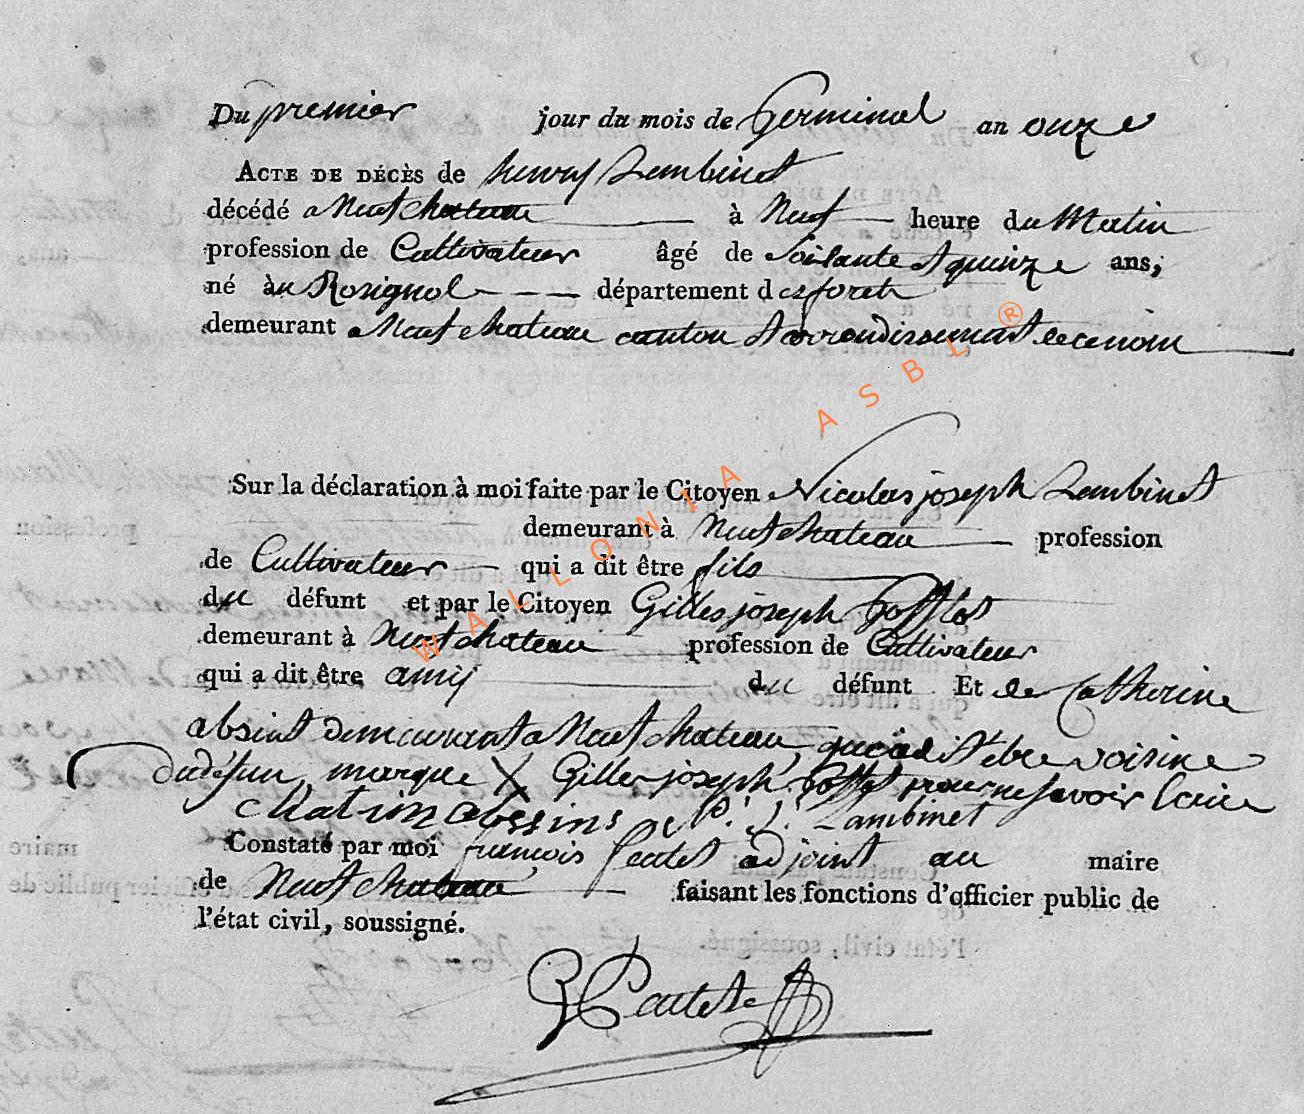 Du premier jour du mois de Germinal an onze
ACTE DE DÉCÈS de henry Lambinet
décédé a Neufchateau à Neuf heure du Matin
profession de Cultivateur âgé de soisante et quinze ans,
né au Rosignol département des foret
demeurant a Neufchateau canton et arrondisement de ce nom
Sur la déclaration à moi faite par le Citoyen Nicolas joseph Lambinet
demeurant à Neufchateau profession
de Cultivateur qui a dit être fils
du défunt et par le Citoyen Gilles joseph
demeurant à Neufchateau profession de Cultivateur
qui a dit être amij du défunt Et de Catherine
absint demeurant a Neufchateau, qui a dit etre voisine
du défun, marque X Gille joseph pour ne savoir Ecrire
chatrin absins N: J: Lambinet
Constaté par moi francois adjoint au maire
de Neufchateau faisant les fonctions d'officier public de
l'état civil, soussigné.
WALLONIA ASBL ®